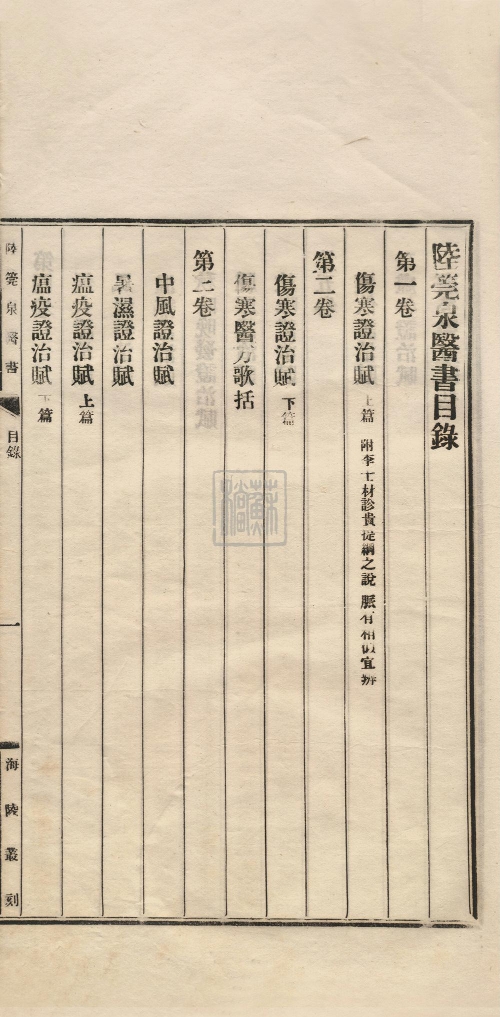 陸筦泉醫書目錄
第一卷
傷寒證治賦 上篇 附李士材診貴提綱之說 脈有相似宜辨
第二卷
傷寒證治賦 下篇
傷寒醫方歌括
第三卷
中風證治賦
暑濕證治賦
瘟疫證治賦 上篇
瘟疫證治賦 下篇
陸筦泉醫書 目錄 一 海陵叢刻